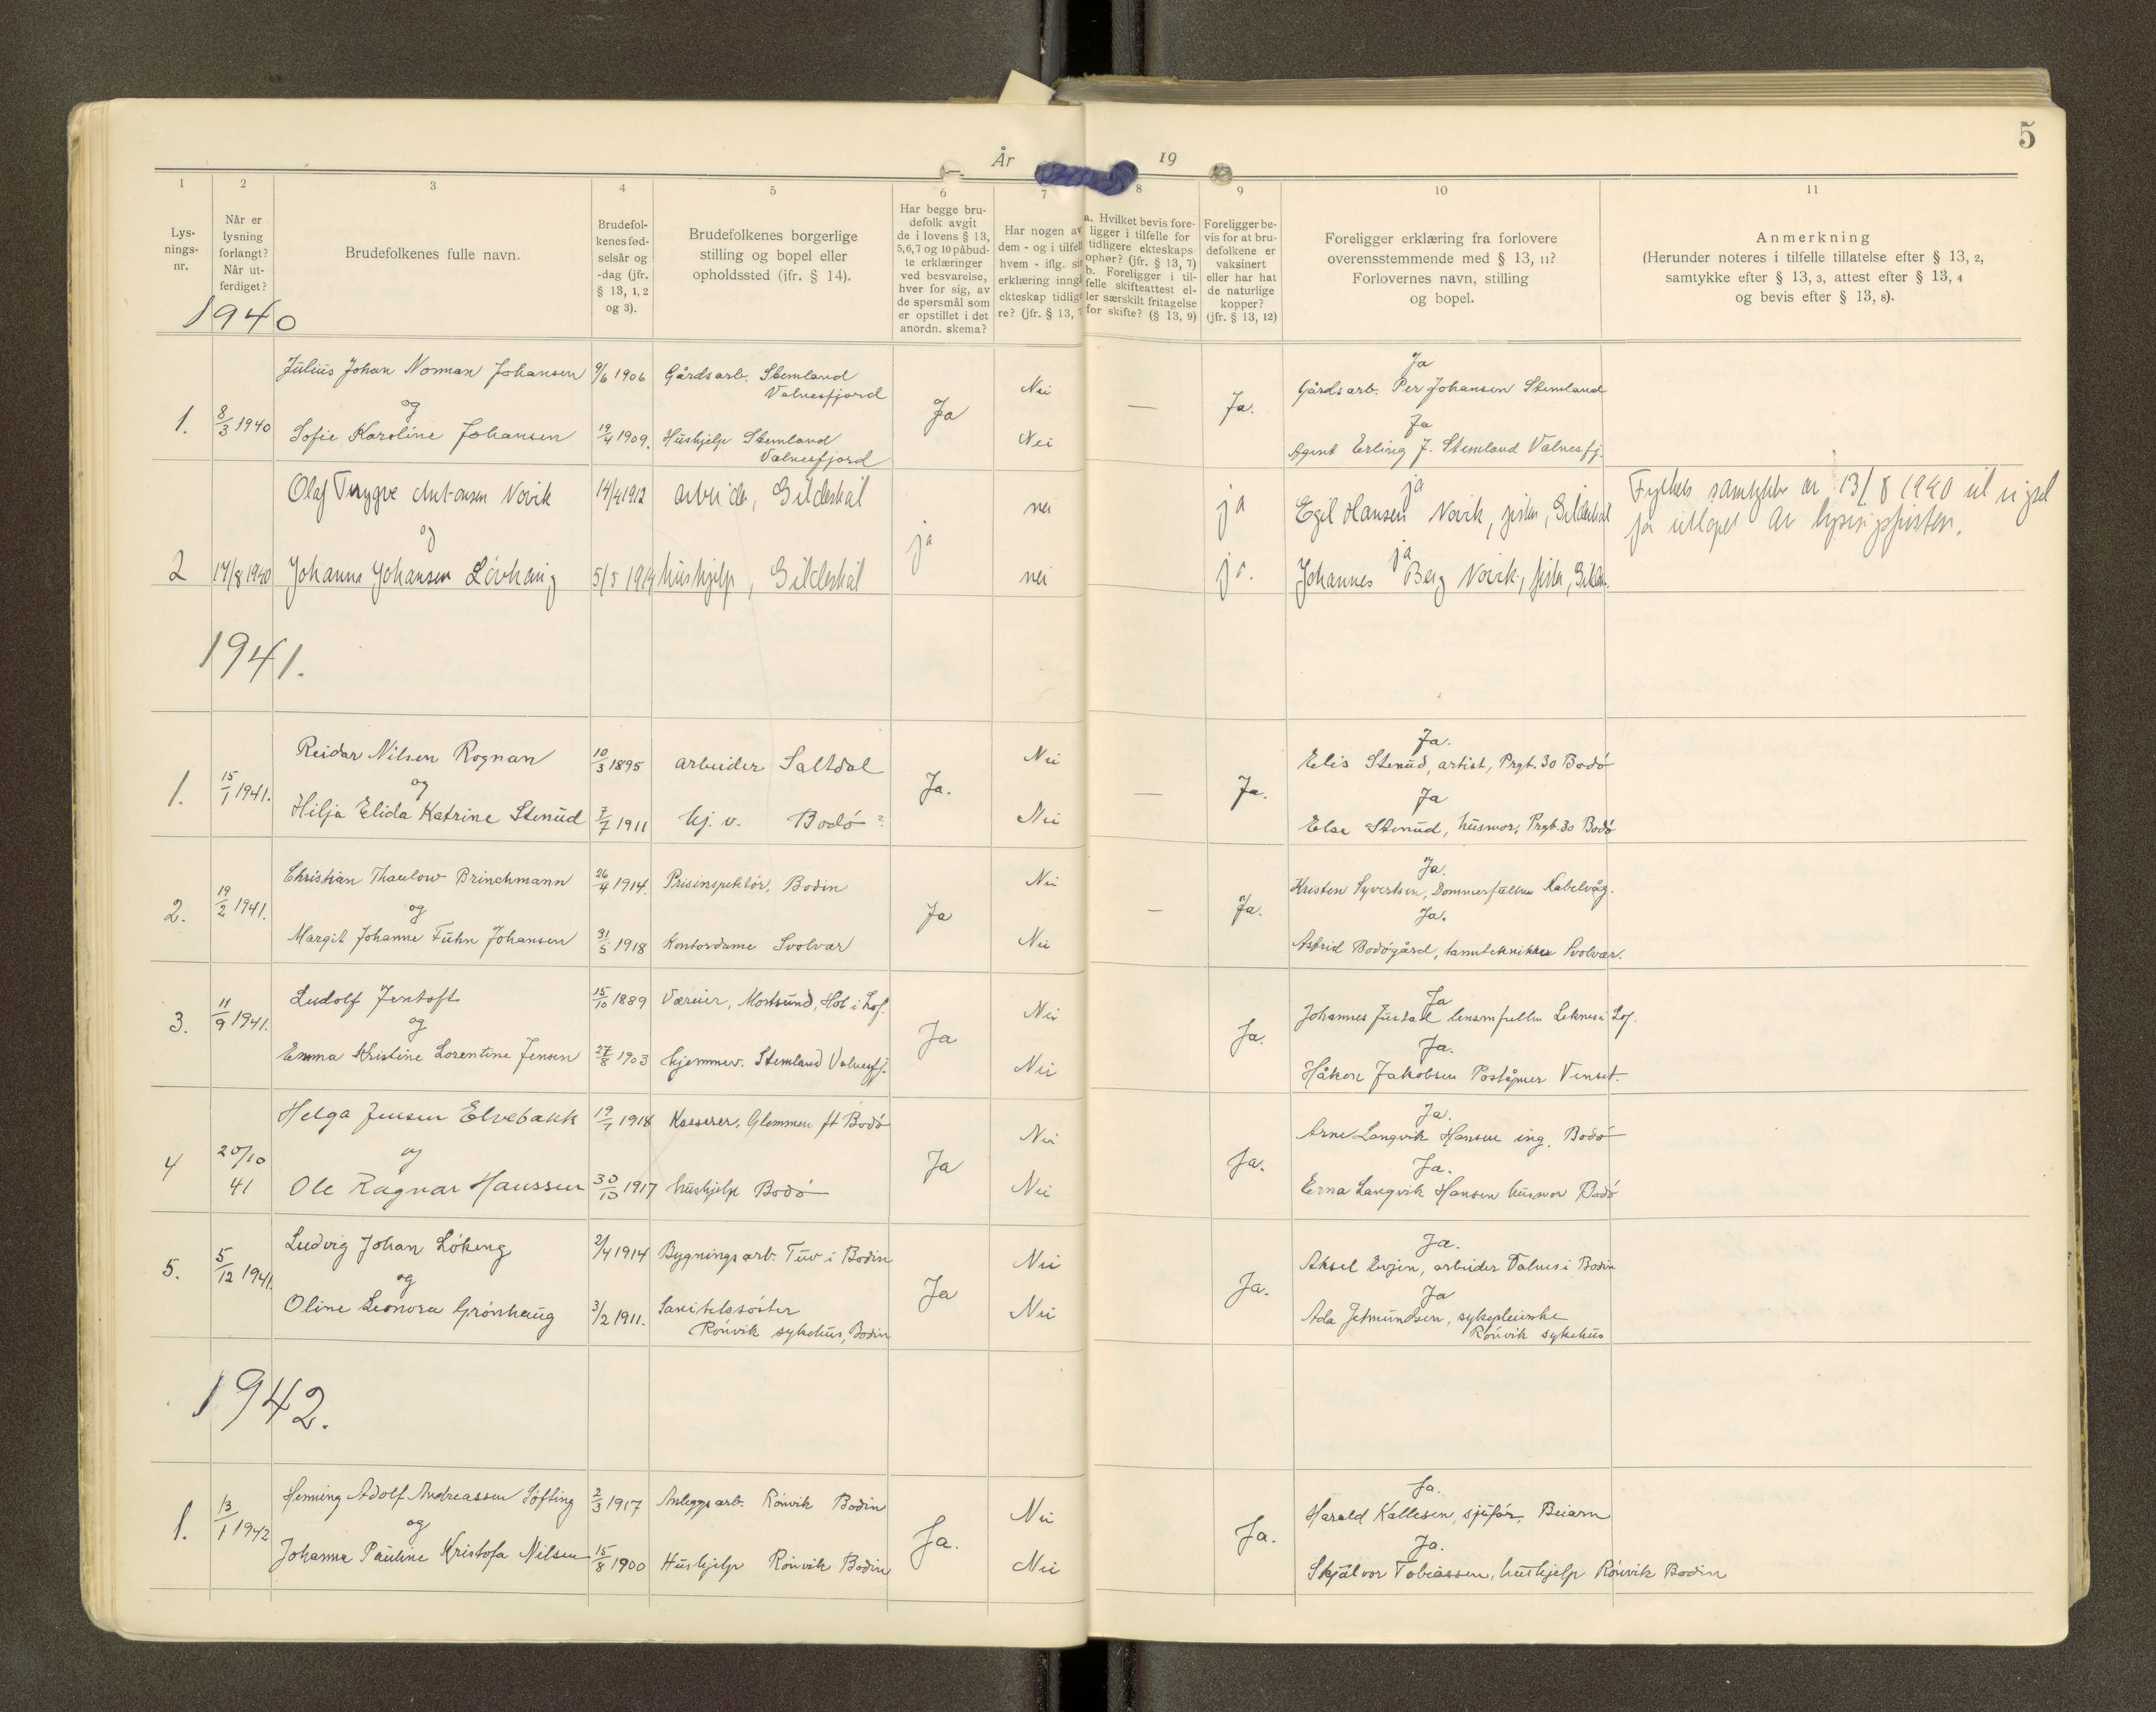 5
År 19
1 2 3 4 5 6 7 8 9 10 11
Lys-
nings-
nr.
Når er
lysning
forlangt?
Når ut-
ferdiget?
Brudefolkenes fulle navn.
Brudefol-
kenes fød-
selsår og
-dag (jfr.
§ 13, 1, 2
og 3).
Brudefolkenes borgerlige
stilling og bopel eller
opholdssted (jfr. § 14).
Har begge bru-
defolk avgit
de i lovens § 13,
5,6,7 og 10 påbud-
te erklæringer
ved besvarelse,
hver for sig, av
de spørsmål som
er opstillet i det
anordn. skema?
Har nogen av
dem - og i tilfel
hvem - iflg. si
erklæring inng
ekteskap tidlig
re? (jfr. § 13, 7
a. Hvilket bevis fore-
ligger i tilfelle for
tidligere ekteskaps
ophør? (jfr. § 13, 7)
b. Foreligger i til-
felle skifteattest el-
ler særskilt fritagelse
for skifte? (§ 13, 9)
Foreligger be-
vis for at bru-
defolkene er
vaksinert
eller har hat
de naturlige
kopper?
(jfr. § 13, 12)
Foreligger erklæring fra forlovere
overensstemmende med § 13, 11?
Forlovernes navn, stilling
og bopel.
Anmerkning
(Herunder noteres i tilfelle tillatelse efter § 13, 2,
samtykke efter § 13, 3, attest efter § 13, 4
og bevis efter § 13, 8).
1940
1. 8/3 1940
Julius Johan Norman Johansen 9/6 1906 Gårdsarb. Stemland
Valnesfjord
og
Sofie Karoline Johansen 19/4 1909. Hushjelp Stemland
Valnesfjord
Ja
Nei
Nei
—
Ja.
Ja
Gårdsarb. Per Johansen Stemland
Ja
Agent Erling J. Stemland Valnesfj.
2 14/8 1940
Olaf Trygve Antonsen Novik 14/4 1912 arbeider, Gildeskål
og
Johanna Johansen Lövhaug 5/5 1919 hushjelp, Gildeskål
ja
nei
nei
ja
ja.
ja
Egil Hansen Novik, fisker, Gildeskål
ja
Johannes Berg Novik, fisker, Gildesk.
Fylkets samtykke av 13/8 1940 til vigsel
før utløpet av lysingsfristen.
1941.
1. 15/1 1941.
Reidar Nilsen Rognan 10/3 1895 arbeider Saltdal
og
Hilja Elida Katrine Stenud 7/7 1911 hj. v. Bodö
Ja.
Nei
Nei
—
Ja.
Ja.
Elis Stenud, artist, Prgt. 30 Bodö
Ja
Else Stenud, husmor, Prgt. 30 Bodö
2. 19/2 1941.
Christian Thaulow Brinchmann 26/4 1914. Prisinspektör, Bodin
og
Margit Johanne Fuhn Johansen 31/5 1918 Kontordame Svolvær
Ja
Nei
Nei
—
Ja.
Ja.
Kristen Syvertsen, Dommerfullm Kabelvåg.
Ja.
Astrid Bodögård, tannteknikker Svolvær.
3. 11/9 1941.
Ludolf Jentoft 15/10 1889 Væreier, Mortsund, Hol i Lof.
og
Emma Kristine Lorentine Jensen 27/8 1903 hjemmev. Stemland Valnesfj.
Ja
Nei
Nei
Ja.
Ja
Johannes Justad lensmfullm Leknes i Lof.
Ja.
Håkon Jakobsen Poståpner Venset.
4 20/10 41
Helga Jensen Elvebakk 19/7 1918 Kasserer, Glemmen ft Bodö
og
Ole Ragnar Hanssen 30/10 1917 hushjelp Bodö
Ja
Nei
Nei
Ja.
Ja.
Arne Langvik Hansen ing. Bodö
Ja.
Erna Langvik Hansen husmor Bodö
5. 5/12 1941.
Ludvig Johan Löking 2/4 1914 Bygningsarb. Tuv i Bodin
og
Oline Leonora Grönhaug 3/2 1911. Sanitetssöster
Rönvik sykehus, Bodin
Ja
Nei
Nei
Ja.
Ja.
Aksel Evjen, arbeider Valnes i Bodin
Ja
Ada Jetmundsen, sykepleierske
Rönvik sykehus
1942.
1. 13/1 1942
Henning Adolf Andreassen Söfting 2/3 1917 Anleggsarb. Rönvik Bodin
og
Johanna Pauline Kristofa Nilsen 15/8 1900 Hushjelp Rönvik Bodin
Ja.
Nei
Nei
Ja.
Ja.
Harald Kallesen, sjåför, Beiarn
Ja.
Skjalvor Tobiassen, hushjelp Rönvik Bodin